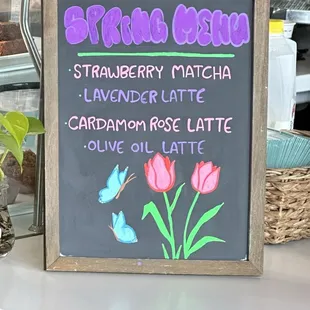 SPRING MENU
· STRAWBERRY MATCHA
· LAVENDER LATTE
· CARDAMOM ROSE LATTE
· OLIVE OIL LATTE